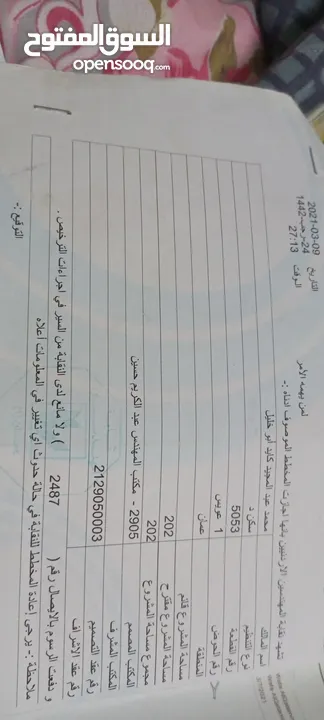 السوق المفتوح
opensooq.com
التاريخ 2021-03-09
24-رجب-1442
الوقت 27:13
لمن يهمه الأمر
تشهد نقابة المهندسين الاردنيين بانها اجازت المخطط الموصوف ادناه :-
اسم المالك محمد عبد المجيد كايد ابو خليل
نوع التنظيم سكن د
رقم القطعة 5053
رقم الحوض 1 عويس
المنطقة عمان
مساحة المشروع قائم
مساحة المشروع مقترح 202
مجموع مساحة المشروع 202
المكتب المصمم 2905 - مكتب المهندس عبد الكريم حسين
المكتب المشرف
رقم عقد التصميم 2129050003
رقم عقد الاشراف
و دفعت الرسوم بالايصال رقم ( 2487 ) و لا مانع لدى النقابة من السير في اجراءات الترخيص .
ملاحظة :- يرجى إعادة المخطط للنقابة في حالة حدوث اي تغيير في المعلومات أعلاه
التوقيع :-